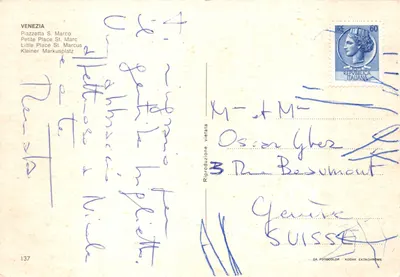 VENEZIA
Piazzetta S. Marco
Petite Place St. Marc
Little Place St. Marcus
Kleiner Markusplatz
Ti ringrazio per
il gentile biglietto.
Un abbraccio
affettuoso a Nicole
e a te
Renata
Riproduzione vietata
60
Mme et Mr
Oscar Ghez
3 Rue Beaumont
Genève
SUISSE
137